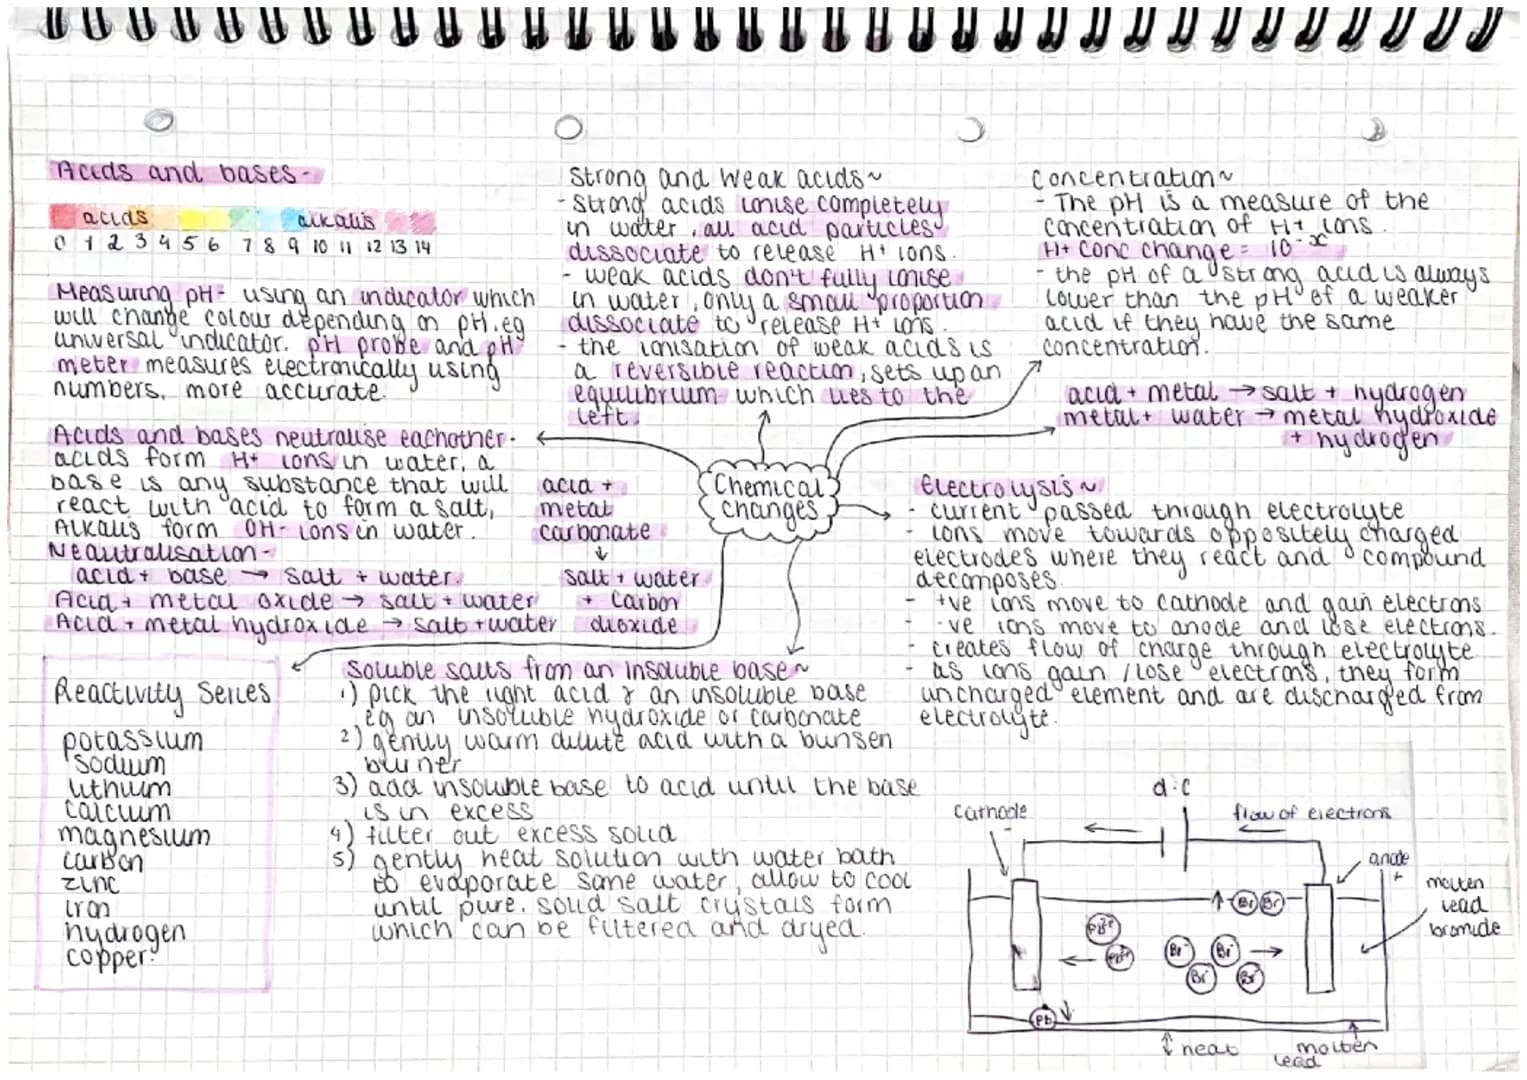 Acids and bases-
acids alkalis
0 1 2 3 4 5 6 7 8 9 10 11 12 13 14
Measuring pH- using an indicator which
will change colour depending on pH.eg
universal indicator. pH probe and pH
meter measures electronically using
numbers, more accurate.
Acids and bases neutralise eachother-
acids form H+ ions in water, a
base is any substance that will
react with acid to form a salt,
Alkalis form OH- ions in water.
Neautralisation-
acid + base → salt + water.
Acid + metal oxide → salt + water
Acid + metal hydroxide → salt + water
Strong and weak acids~
- Strong acids ionise completely
in water, all acid particles
dissociate to release H+ ions.
- weak acids don't fully ionise
in water, only a small proportion
dissociate to release H+ ions.
- the ionisation of weak acids is
a reversible reaction, sets up an
equilibrium which lies to the
left.
concentration~
- The pH is a measure of the
concentration of H+ ions.
H+ conc change = 10⁻ˣ
- the pH of a strong acid is always
lower than the pH of a weaker
acid if they have the same
concentration.
acid + metal → salt + hydrogen
metal + water → metal hydroxide
+ hydrogen
Chemical
changes
acid +
metal
carbonate
↓
salt + water
+ Carbon
dioxide
Electrolysis~
- current passed through electrolyte
- ions move towards oppositely charged
electrodes where they react and compound
decomposes.
- +ve ions move to cathode and gain electrons
- -ve ions move to anode and lose electrons.
- creates flow of charge through electrolyte
- as ions gain / lose electrons, they form
uncharged element and are discharged from
electrolyte.
Reactivity Series
potassium
sodium
lithium
calcium
magnesium
carbon
zinc
iron
hydrogen
copper.
Soluble salts from an insoluble base~
1) pick the right acid & an insoluble base
eg an insoluble hydroxide or carbonate
2) gently warm dilute acid with a bunsen
burner
3) add insoluble base to acid until the base
is in excess
4) filter out excess solid
5) gently heat solution with water bath
to evaporate some water, allow to cool
until pure. solid salt crystals form
which can be filtered and dryed.
d.c
cathode
-
flow of electrons
anode
+
molten
lead
bromide
Br Br
Pb²⁺
Pb²⁺
Br⁻ Br⁻
Br⁻ Br⁻
Pb
heat
molten
lead